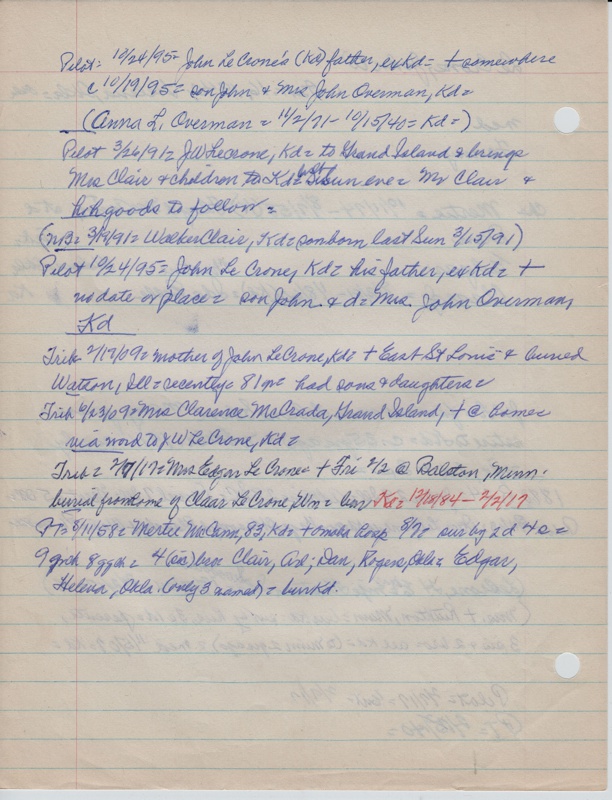 Pilot = 10/24/95 = John LeCrone's (Kd) father, ex Kd = + somewhere
c 10/19/95 = son John & Mrs John Overman, Kd =
(Anna L. Overman = 14/2/71 - 10/15/40 = Kd =)
Pilot 3/26/91 = JW LeCrone, Kd = to Grand Island & brings
Mrs Clair & children to Kd = last Sun eve = Mr Clair &
hshgoods to follow =
(NB = 3/19/91 = Walker Clair, Kd = son born last Sun 3/15/91)
Pilot 10/24/95 = John LeCrone, Kd = his father, ex Kd = +
no date or place = son John & d = Mrs. John Overman,
Kd
Trib 2/17/09 = mother of John LeCrone, Kd = + East St Louis & buried
Watson, Ill = recently = 81 yr = had sons & daughters =
Trib 4/23/09 = Mrs Clarence McCrada, Grand Island, + @ home
via word to JW LeCrone, Kd =
Trib = 2/9/17 = Mrs Edgar LeCrone = + Fri 2/2 @ Balaton, Minn.
burial from home of Clair LeCrone, = bur Kd = 12/18/84 - 2/2/17
PT = 8/11/58 = Mertie McCann, 83, Kd = + Omaha hosp 8/9 = sur by 2 d 4 s =
9 gch 8 ggch = 4 (sic) bros Clair, Ark; Dan, Rogers, Okla = Edgar,
Helena, Okla. (only 3 named) = bur Kd.